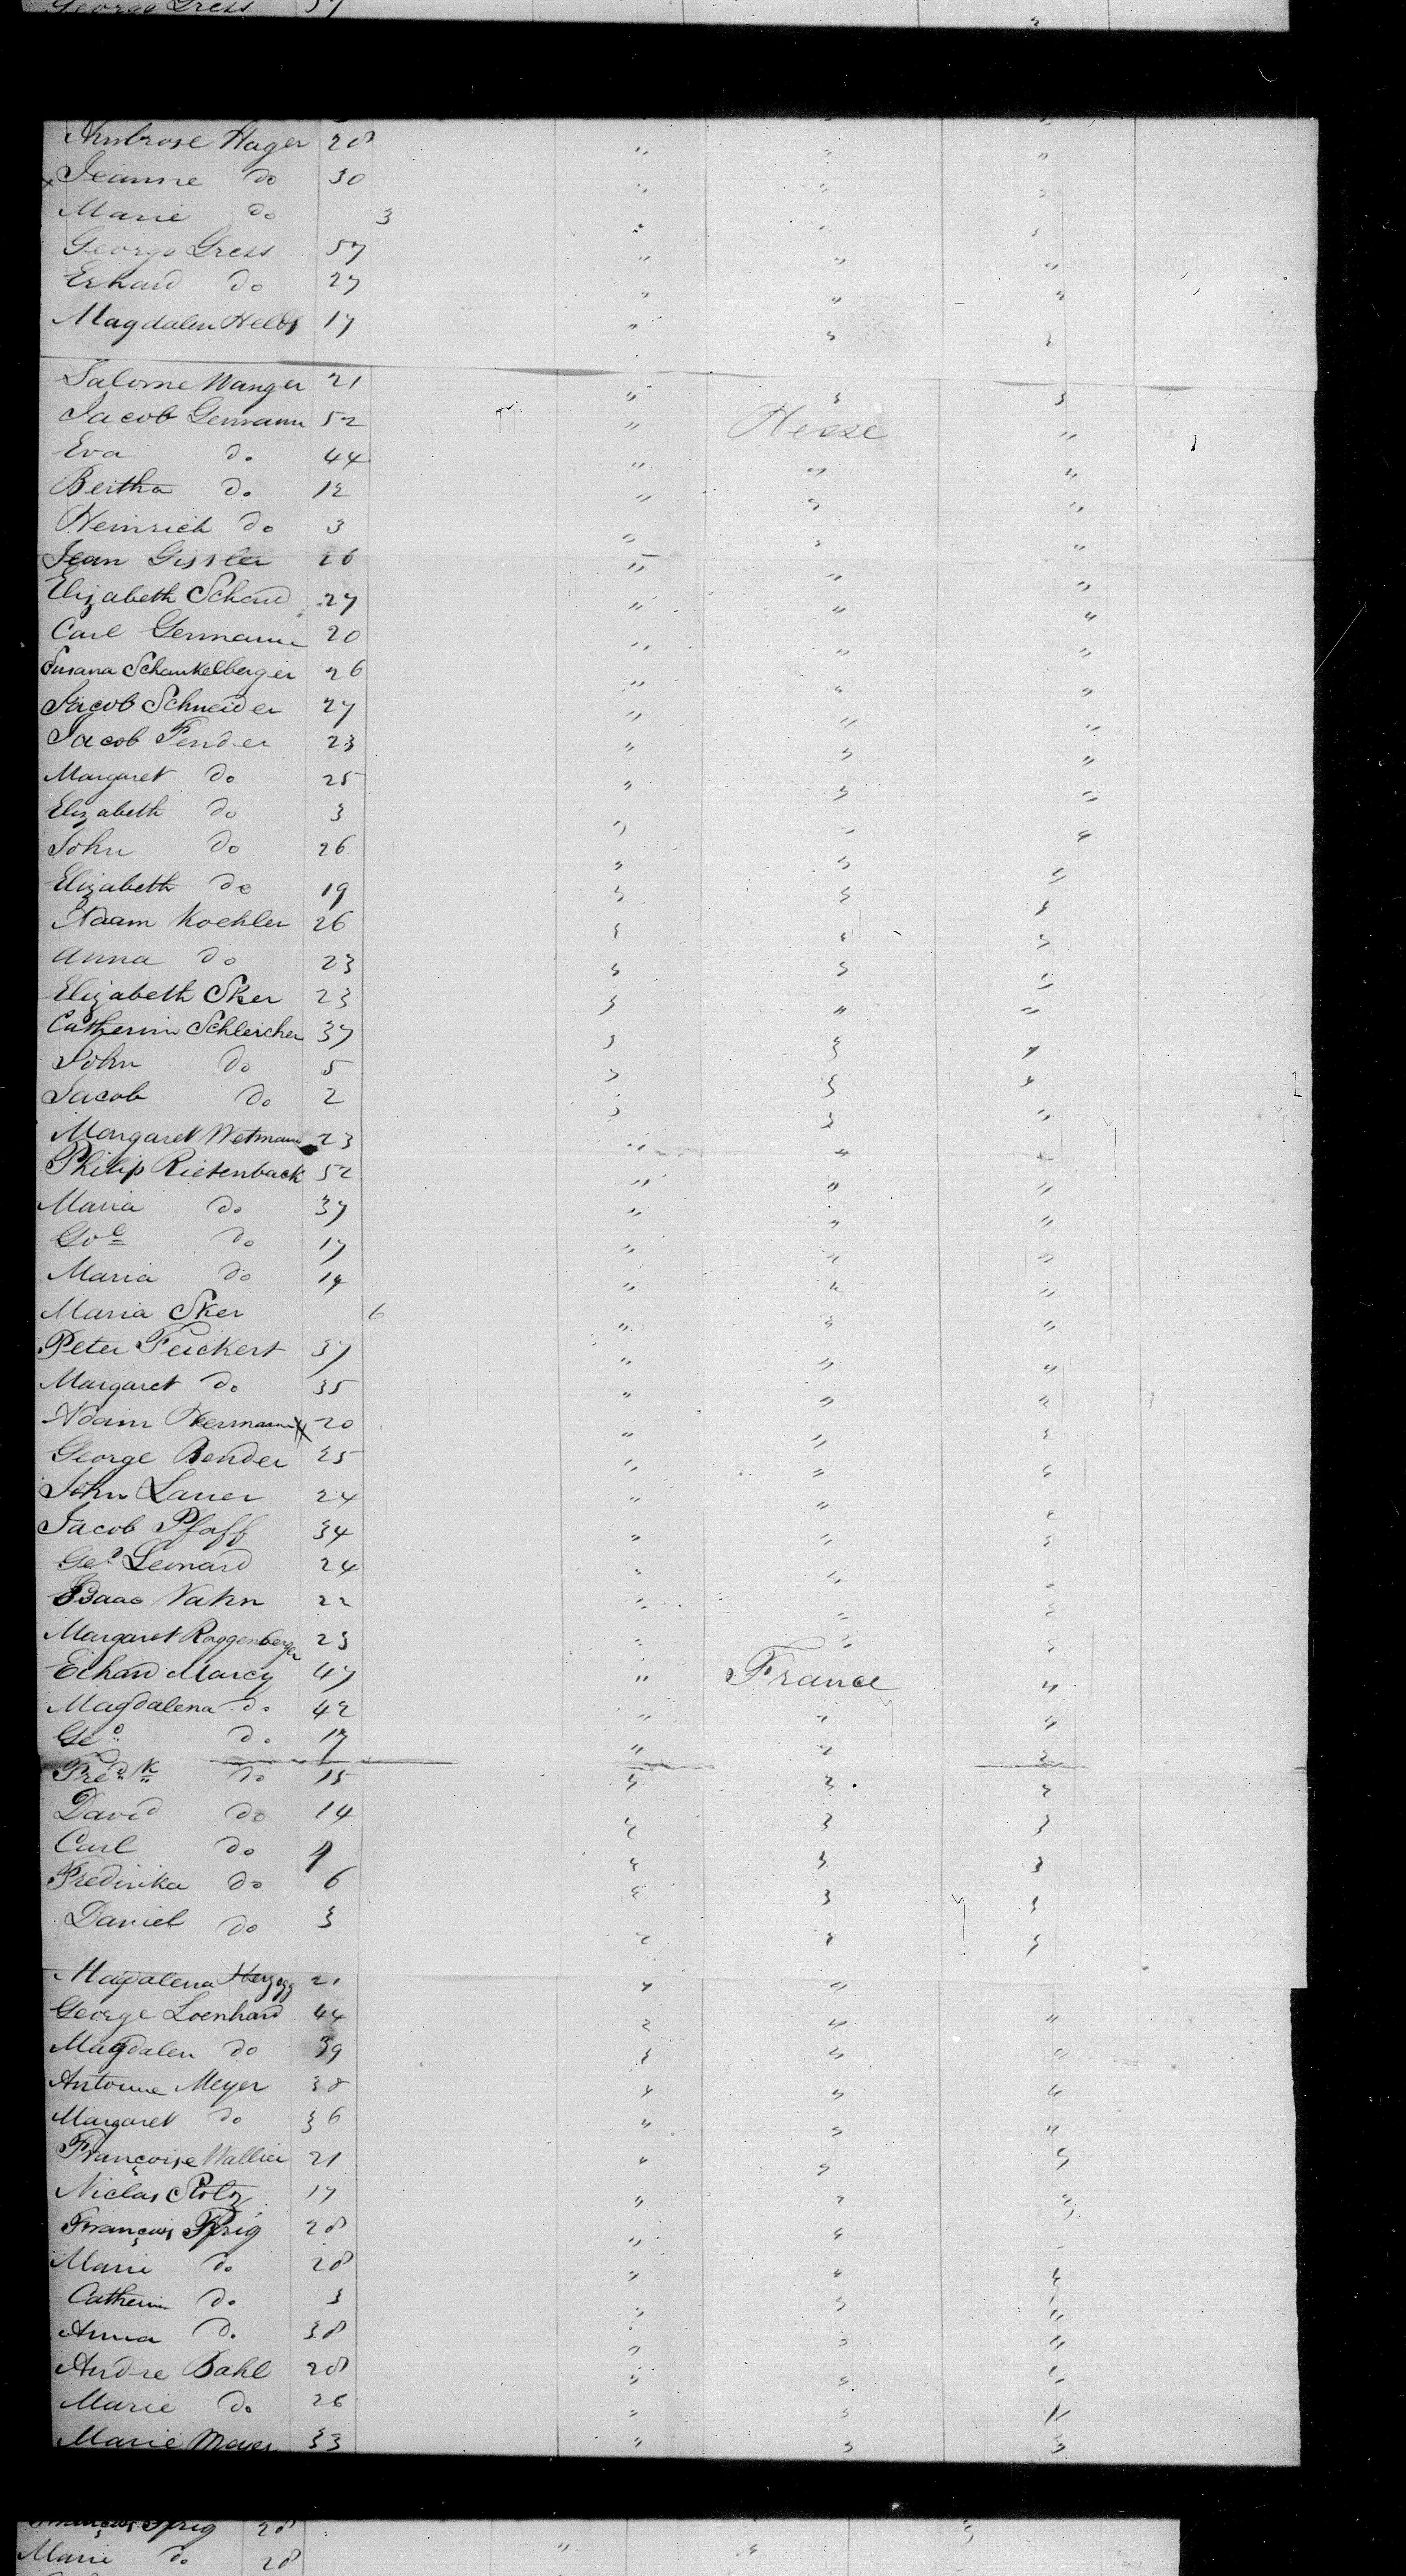 George Gress 57 "
Ambrose Hager 28 " " "
x Jeanne do 30 " " "
Marie do 3 " " "
George Gress 57 " " "
Erhard do 27 " " "
Magdalen 17 " " "
Salome Wanger 21 " " "
Jacob Germann 52 " Hesse "
Eva do 44 " " "
Bertha do 12 " " "
Heinrich do 3 " " "
Jean Gissler 26 " " "
Elizabeth 27 " " "
Carl Germann 20 " " "
Susana Schankelberger 26 " " "
Jacob Schneider 27 " " "
Jacob Fender 23 " " "
Margaret do 25 " " "
Elizabeth do 3 " " "
John do 26 " " "
Elizabeth do 19 " " "
Adam Koehler 26 " " "
Anna do 23 " " "
Elizabeth Sker 23 " " "
Catherin Schleicher 37 " " "
John do 5 " " "
Jacob do 2 " " "
Margaret Wetmann 23 " " "
Philip Rietenback 52 " " "
Maria do 37 " " "
do 17 " " "
Maria do 14 " " "
Maria Sker 6 " " "
Peter Feickert 37 " " "
Margaret do 35 " " "
Adam Hermann 20 " " "
George Bender 25 " " "
John Lauer 24 " " "
Jacob Pfaff 34 " " "
Geo Leonard 24 " " "
Isaac Nahn 22 " " "
Margaret Roggenberger 23 " " "
Erhard Marcy 47 " France "
Magdalena do 42 " " "
Geo do 17 " " "
Fredk do 15 " " "
David do 14 " " "
Carl do 9 " " "
Fredirika do 6 " " "
Daniel do 3 " " "
Magdalena Herzogg 21 " "
George Loenhard 44 " " "
Magdalen do 39 " " "
Antoine Meyer 38 " " "
Margaret do 36 " " "
Françoise Wallier 21 " " "
Niclas Stolz 17 " " "
François 28 " " "
Marie do 28 " " "
Catherin do 3 " " "
Anna do 38 " " "
Andre Bahl 28 " " "
Marie do 26 " " "
Marie Meyer 33 " " "
28 "
Marie do 28 " "